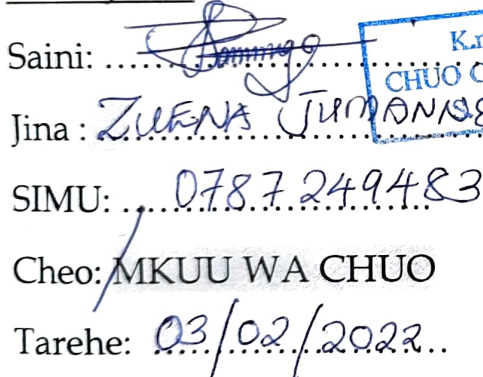 Saini: ....................
K.n
CHUO C
Jina : ZUENA JUMANNE
SIMU: ....0787249483
Cheo: MKUU WA CHUO
Tarehe: 03/02/2022..